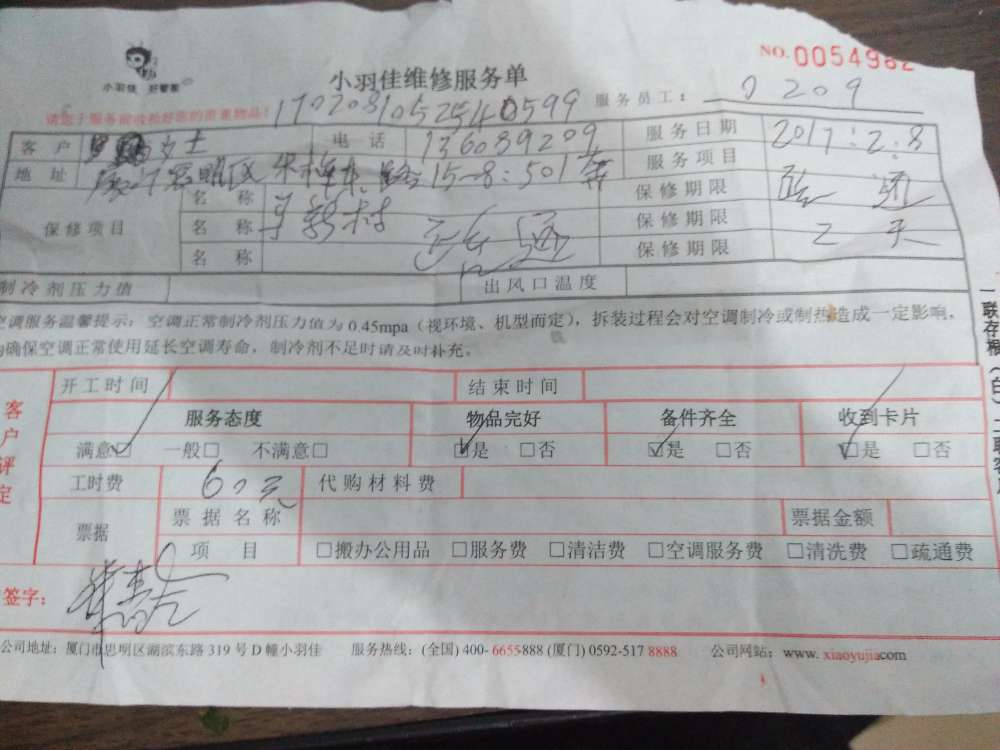 小羽佳 好管家
NO. 0054982
小羽佳维修服务单
请您于服务前收捡好您的贵重物品! 17020810525410599 服务员工: 0209
客户 女士 电话 服务日期 2017:2:8
地址 思明区 路15-8:501 服务项目 疏通
保修项目 名称 保修期限
名称 疏通 保修期限 2天
名称 保修期限
制冷剂压力值 出风口温度
空调服务温馨提示:空调正常制冷剂压力值为0.45mpa(视环境、机型而定),拆装过程会对空调制冷或制热造成一定影响,
确保空调正常使用延长空调寿命,制冷剂不足时请及时补充。
客户评定
开工时间 结束时间
服务态度 物品完好 备件齐全 收到卡片
满意☑ 一般□ 不满意□ ☑是 □否 ☑是 □否 ☑是 □否
工时费 60元 代购材料费
票据 票据名称 票据金额
项目 □搬办公用品 □服务费 □清洁费 □空调服务费 □清洗费 □疏通费
签字:
公司地址:厦门市思明区湖滨东路319号D幢小羽佳 服务热线:(全国)400-6655888 (厦门)0592-517 8888 公司网站:www.xiaoyujia.com
一联存根(白)